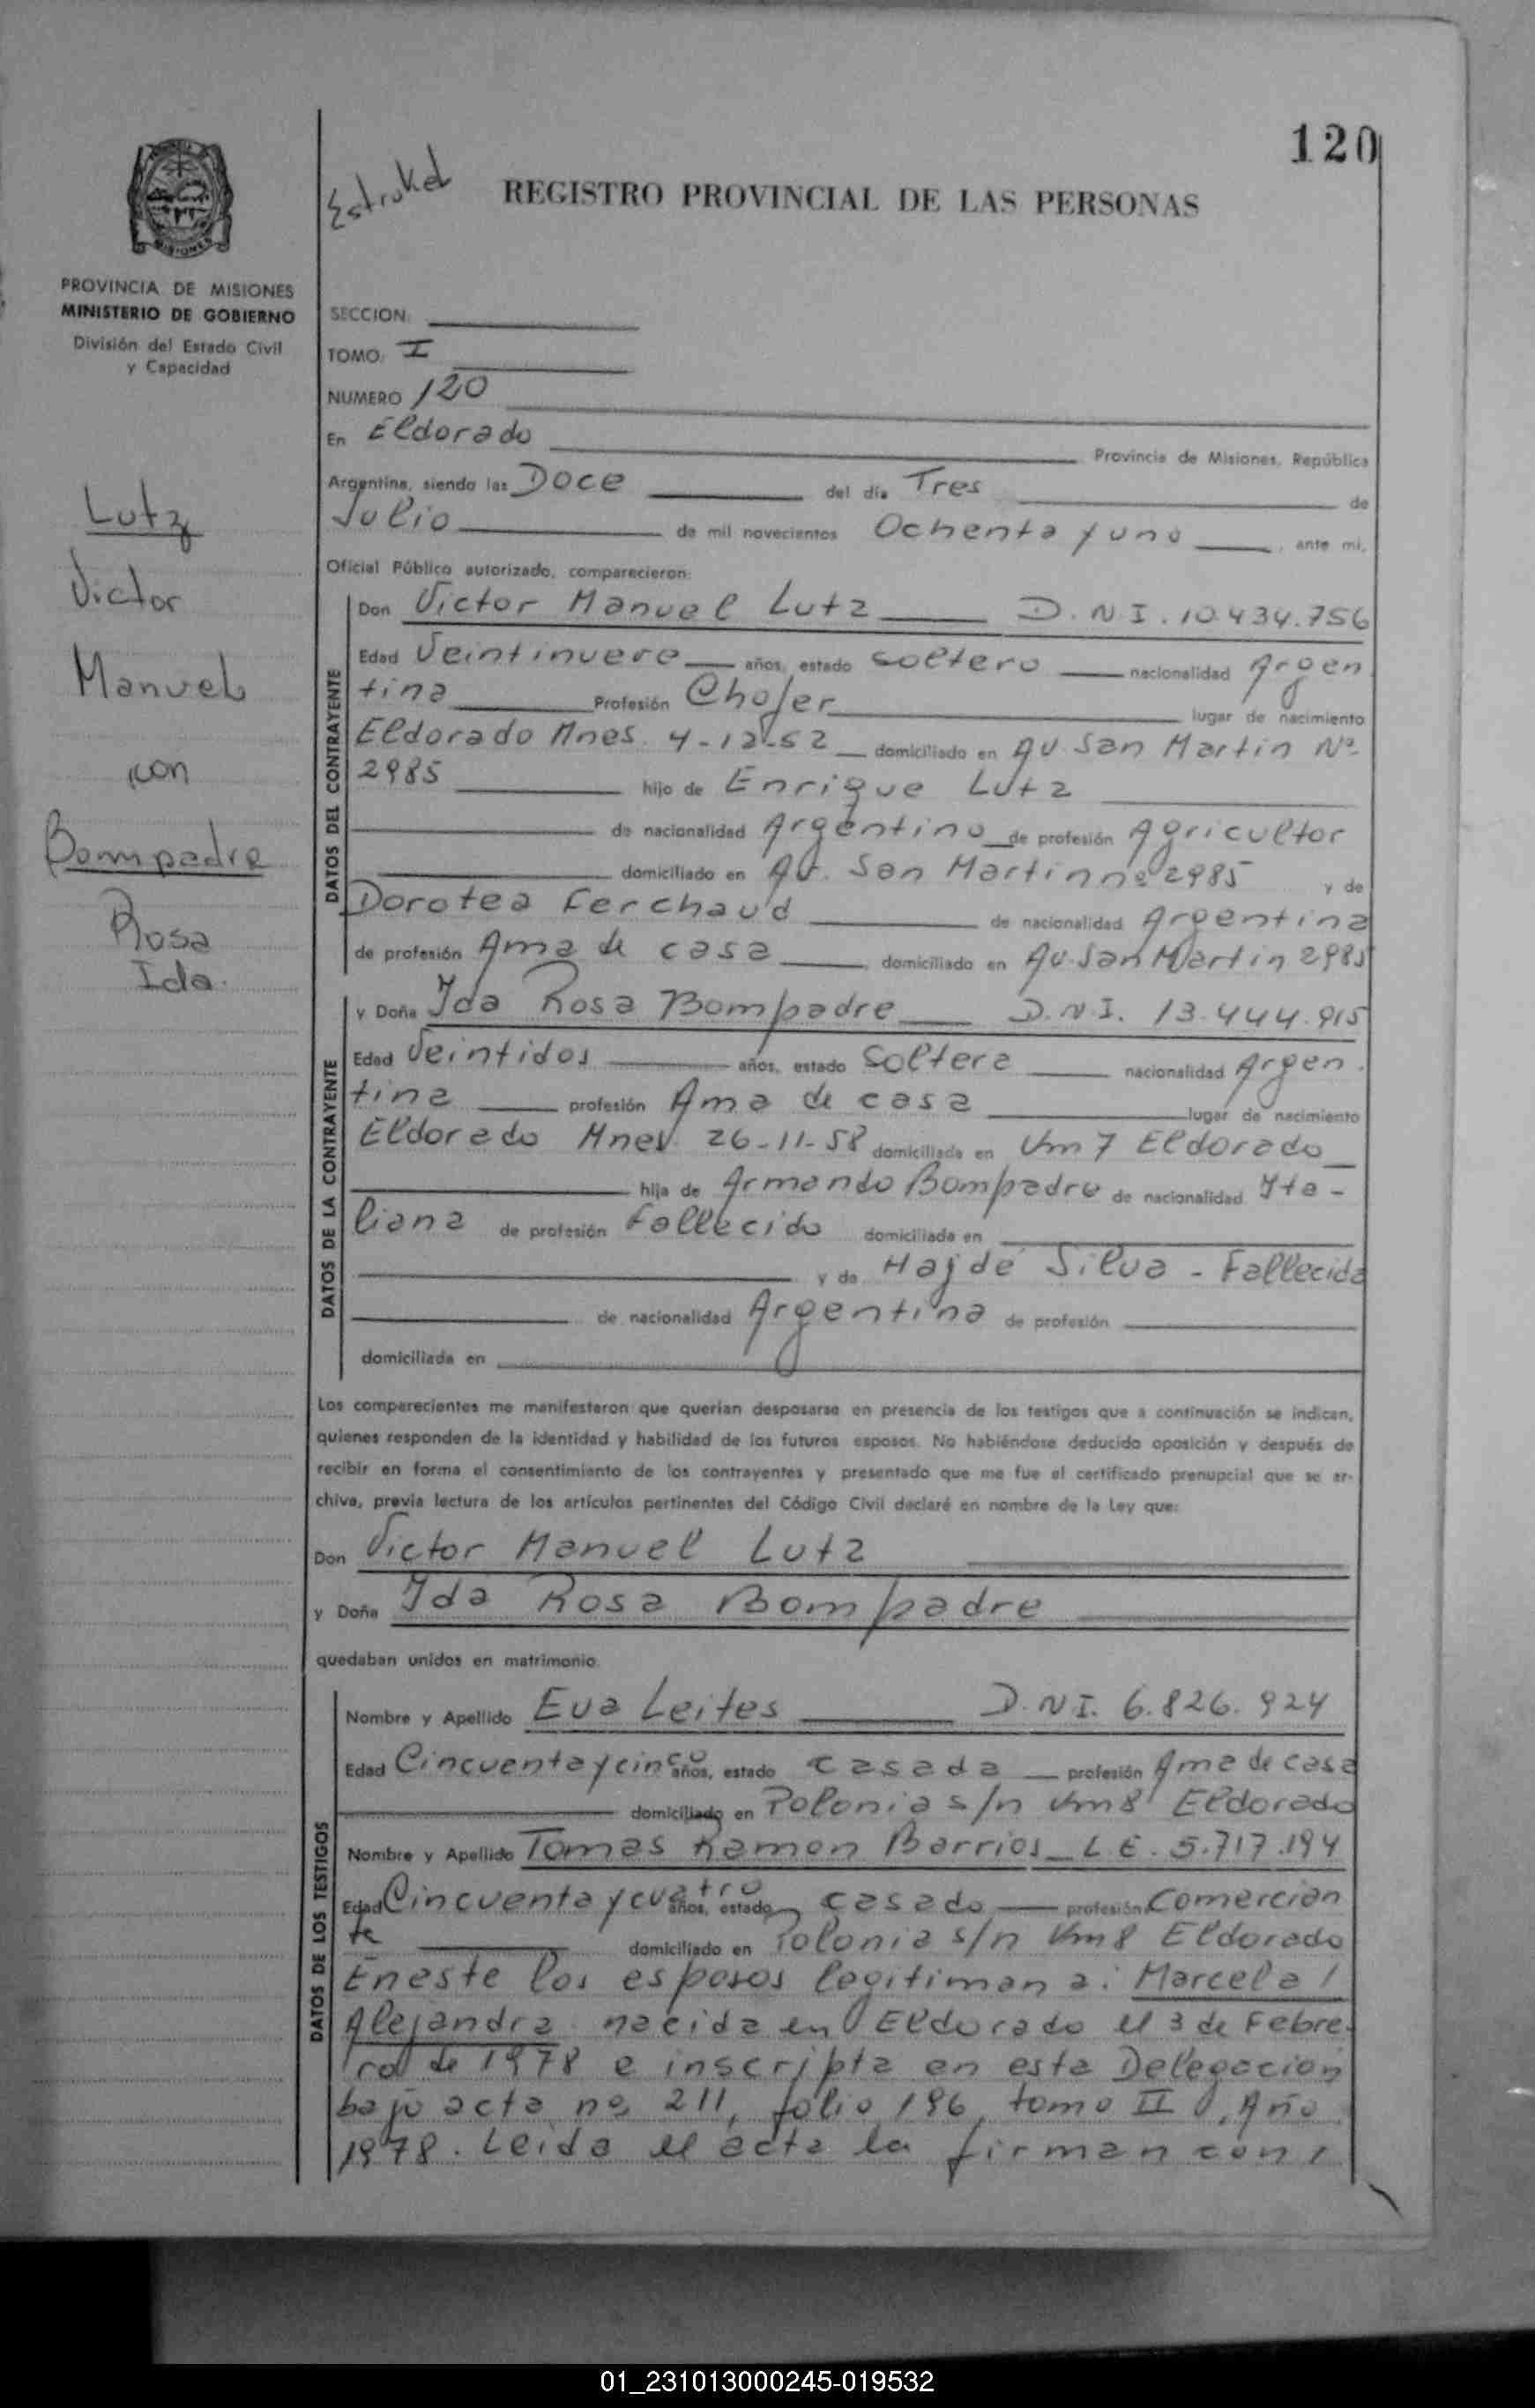 120
Estruket
REGISTRO PROVINCIAL DE LAS PERSONAS
MISIONES
PROVINCIA DE MISIONES
MINISTERIO DE GOBIERNO
División del Estado Civil
y Capacidad
Lutz
Victor
Manuel
con
Bompadre
Rosa
Ida.
SECCION:
TOMO: I
NUMERO 120
En Eldorado Provincia de Misiones, República
Argentina, siendo las Doce del día Tres de
Julio de mil novecientos Ochenta y uno, ante mi,
Oficial Público autorizado, comparecieron:
DATOS DEL CONTRAYENTE
Don Victor Manuel Lutz D.N.I. 10.434.756
Edad Veintinueve años, estado soltero nacionalidad Argen
tina Profesión Chofer lugar de nacimiento
Eldorado Mnes. 4-12-52 domiciliado en Av. San Martin Nº
2985 hijo de Enrique Lutz
de nacionalidad Argentino de profesión Agricultor
domiciliado en Av. San Martin nº 2985 y de
Dorotea Ferchaud de nacionalidad Argentina
de profesión Ama de casa domiciliado en Av. San Martin 2985
DATOS DE LA CONTRAYENTE
y Doña Ida Rosa Bompadre D.N.I. 13.444.915
Edad Veintidos años, estado Soltera nacionalidad Argen.
tina profesión Ama de casa lugar de nacimiento
Eldorado Mnes. 26-11-58 domiciliada en Km 7 Eldorado
hija de Armando Bompadre de nacionalidad Ita-
liana de profesión Fallecido domiciliada en
y de Hajdé Silva - Fallecida
de nacionalidad Argentina de profesión
domiciliada en
Los comparecientes me manifestaron que querían desposarse en presencia de los testigos que a continuación se indican,
quienes responden de la identidad y habilidad de los futuros esposos. No habiéndose deducido oposición y después de
recibir en forma el consentimiento de los contrayentes y presentado que me fue el certificado prenupcial que se ar-
chiva, previa lectura de los artículos pertinentes del Código Civil declaré en nombre de la Ley que:
Don Victor Manuel Lutz
y Doña Ida Rosa Bompadre
quedaban unidos en matrimonio.
DATOS DE LOS TESTIGOS
Nombre y Apellido Eva Leites D.N.I. 6.826.924
Edad Cincuenta y cinco años, estado casada profesión Ama de casa
domiciliado en Polonia s/n Km 8 Eldorado
Nombre y Apellido Tomas Ramon Barrios L.E. 5.717.194
Edad Cincuenta y cuatro años, estado casado profesión Comercian
te domiciliado en Polonia s/n Km 8 Eldorado
En este los esposos legitiman a: Marcela /
Alejandra nacida en Eldorado el 3 de Febre-
ro de 1978 e inscripta en esta Delegacion
bajo acta nº 211, folio 196, tomo II, Año
1978. Leida el acta la firman con /
01_231013000245-019532